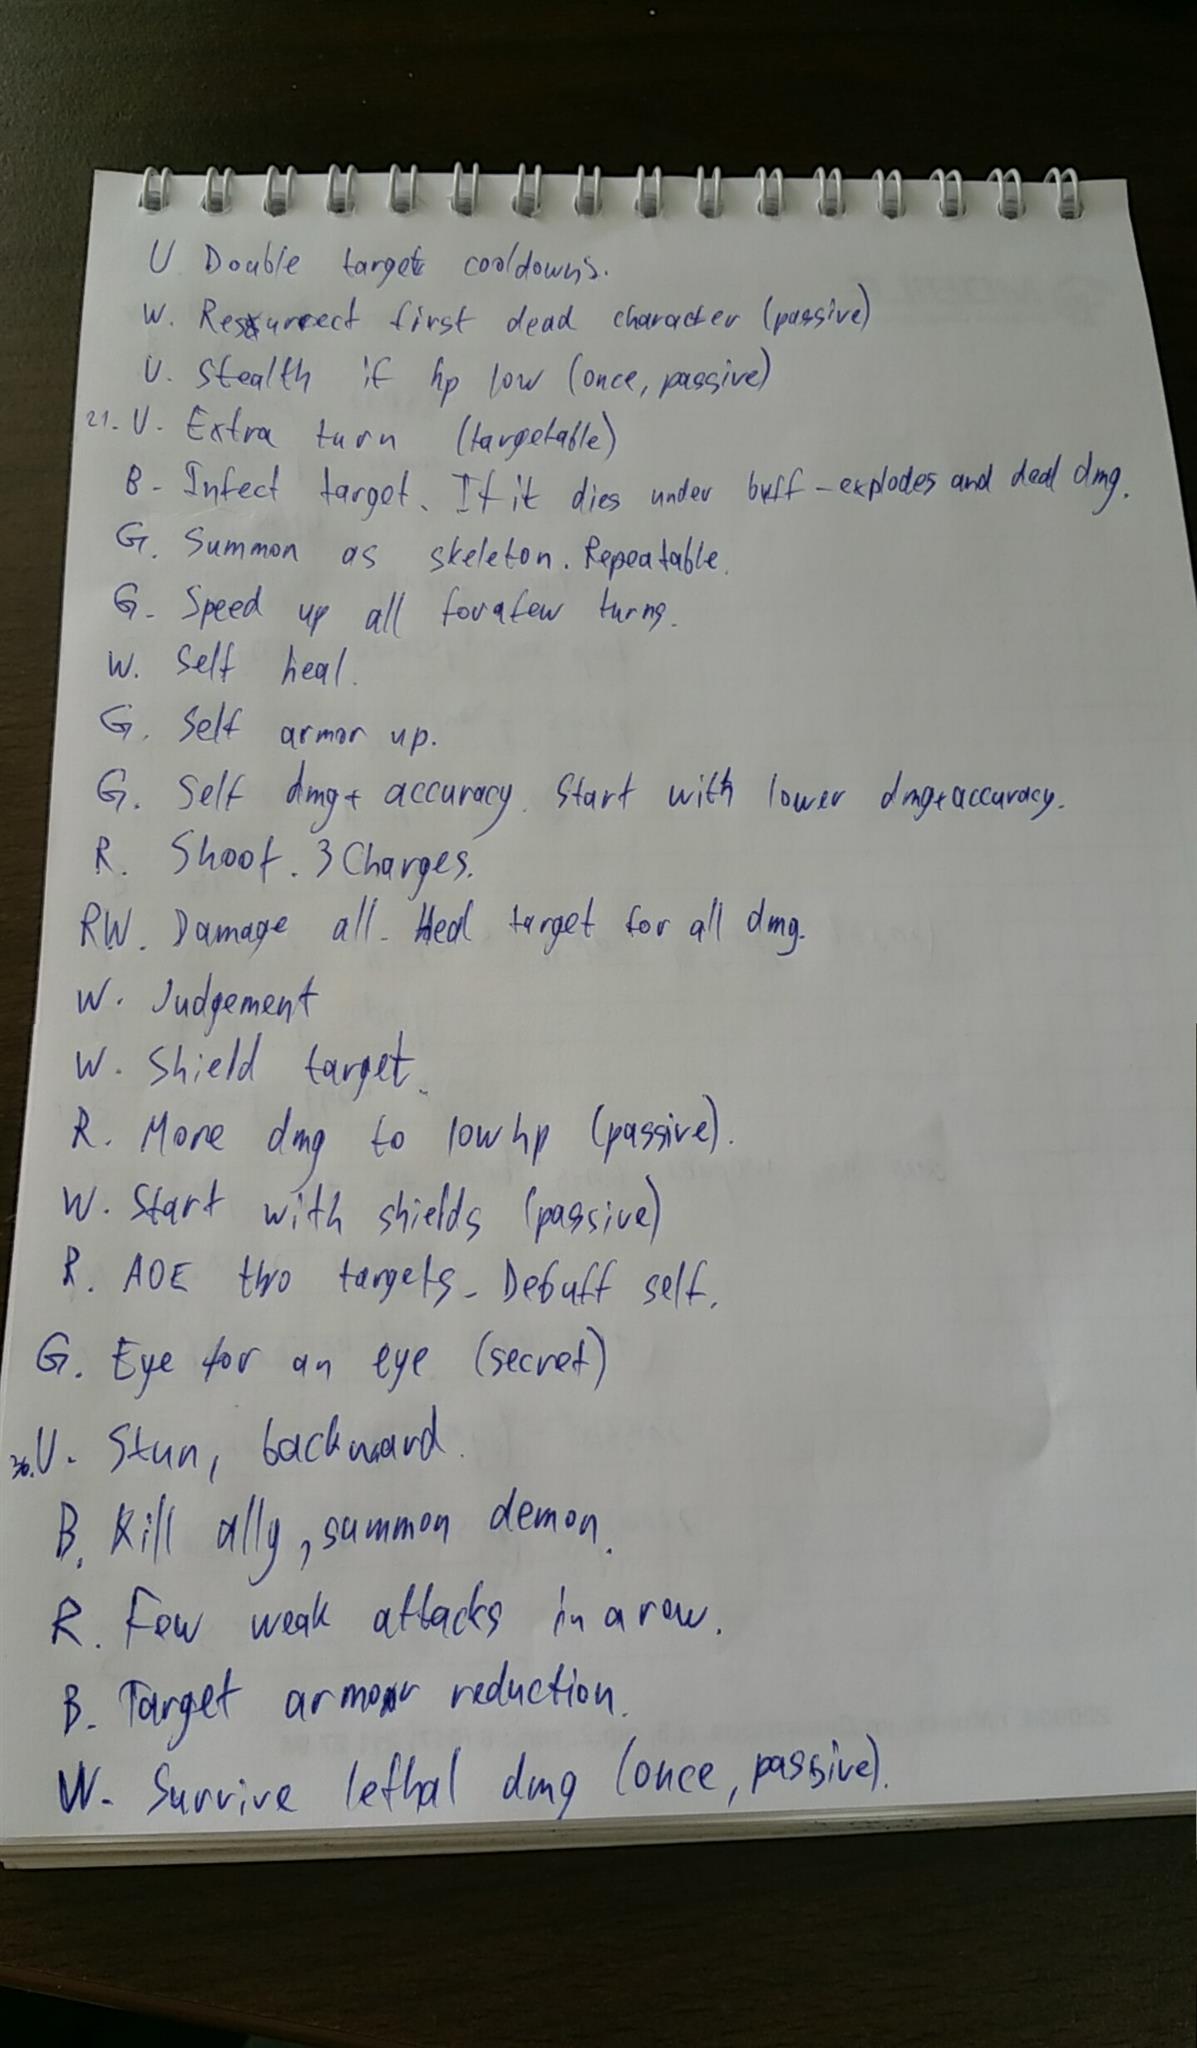 U Double target cooldowns.
W. Resurrect first dead character (passive)
U. Stealth if hp low (once, passive)
21. U. Extra turn (targetable)
B - Infect target. If it dies under buff - explodes and deal dmg.
G. Summon as skeleton. Repeatable.
G - Speed up all for a few turns.
W. Self heal.
G. Self armor up.
G. Self dmg + accuracy. Start with lower dmg + accuracy.
R. Shoot. 3 Charges.
RW. Damage all - Heal target for all dmg.
W. Judgement
W. Shield target.
R. More dmg to low hp (passive).
W. Start with shields (passive)
R. AOE two targets - Debuff self.
G. Eye for an eye (secret)
36. U. Stun, backward.
B. Kill ally, summon demon.
R. Few weak attacks in a row.
B. Target armour reduction.
W. Survive lethal dmg (once, passive).